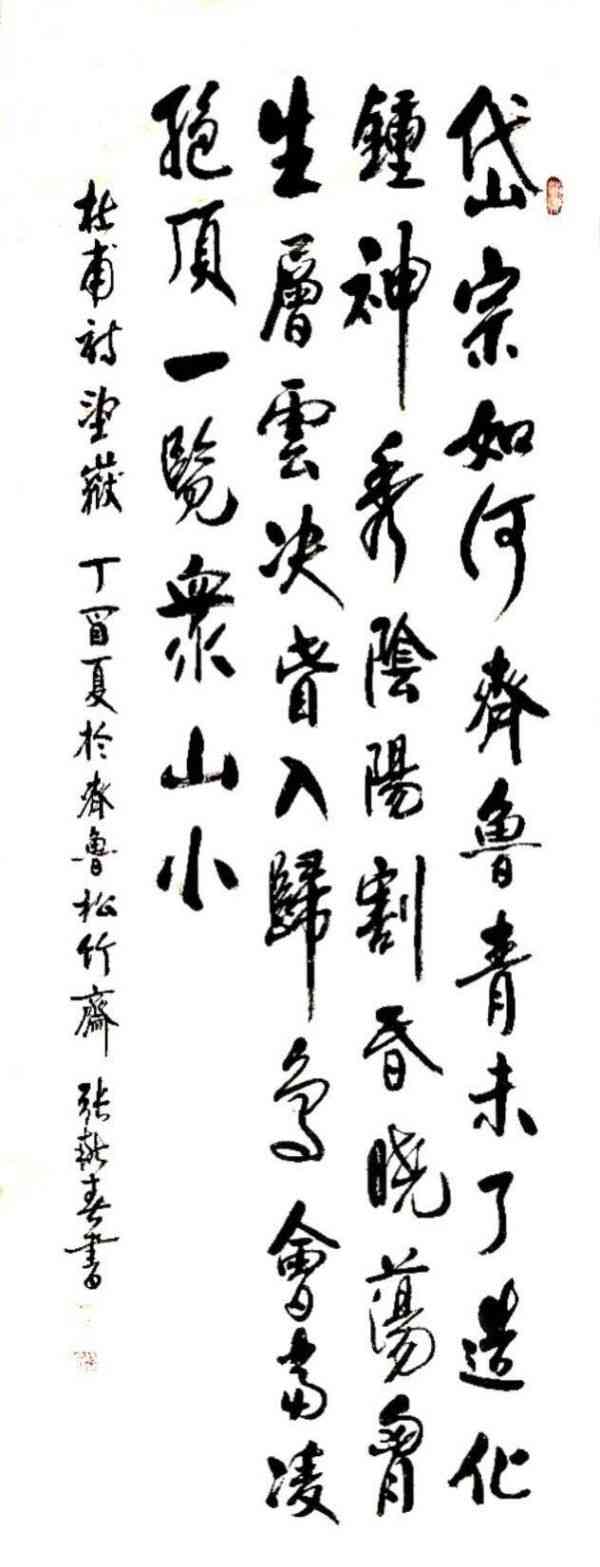 岱宗如何齊魯青未了造化
鍾神秀陰陽割昏曉蕩胷
生層雲決眥入歸鳥會當凌
絕頂一覽衆山小
杜甫詩望嶽 丁酉夏於齊魯松竹齋 張新春書